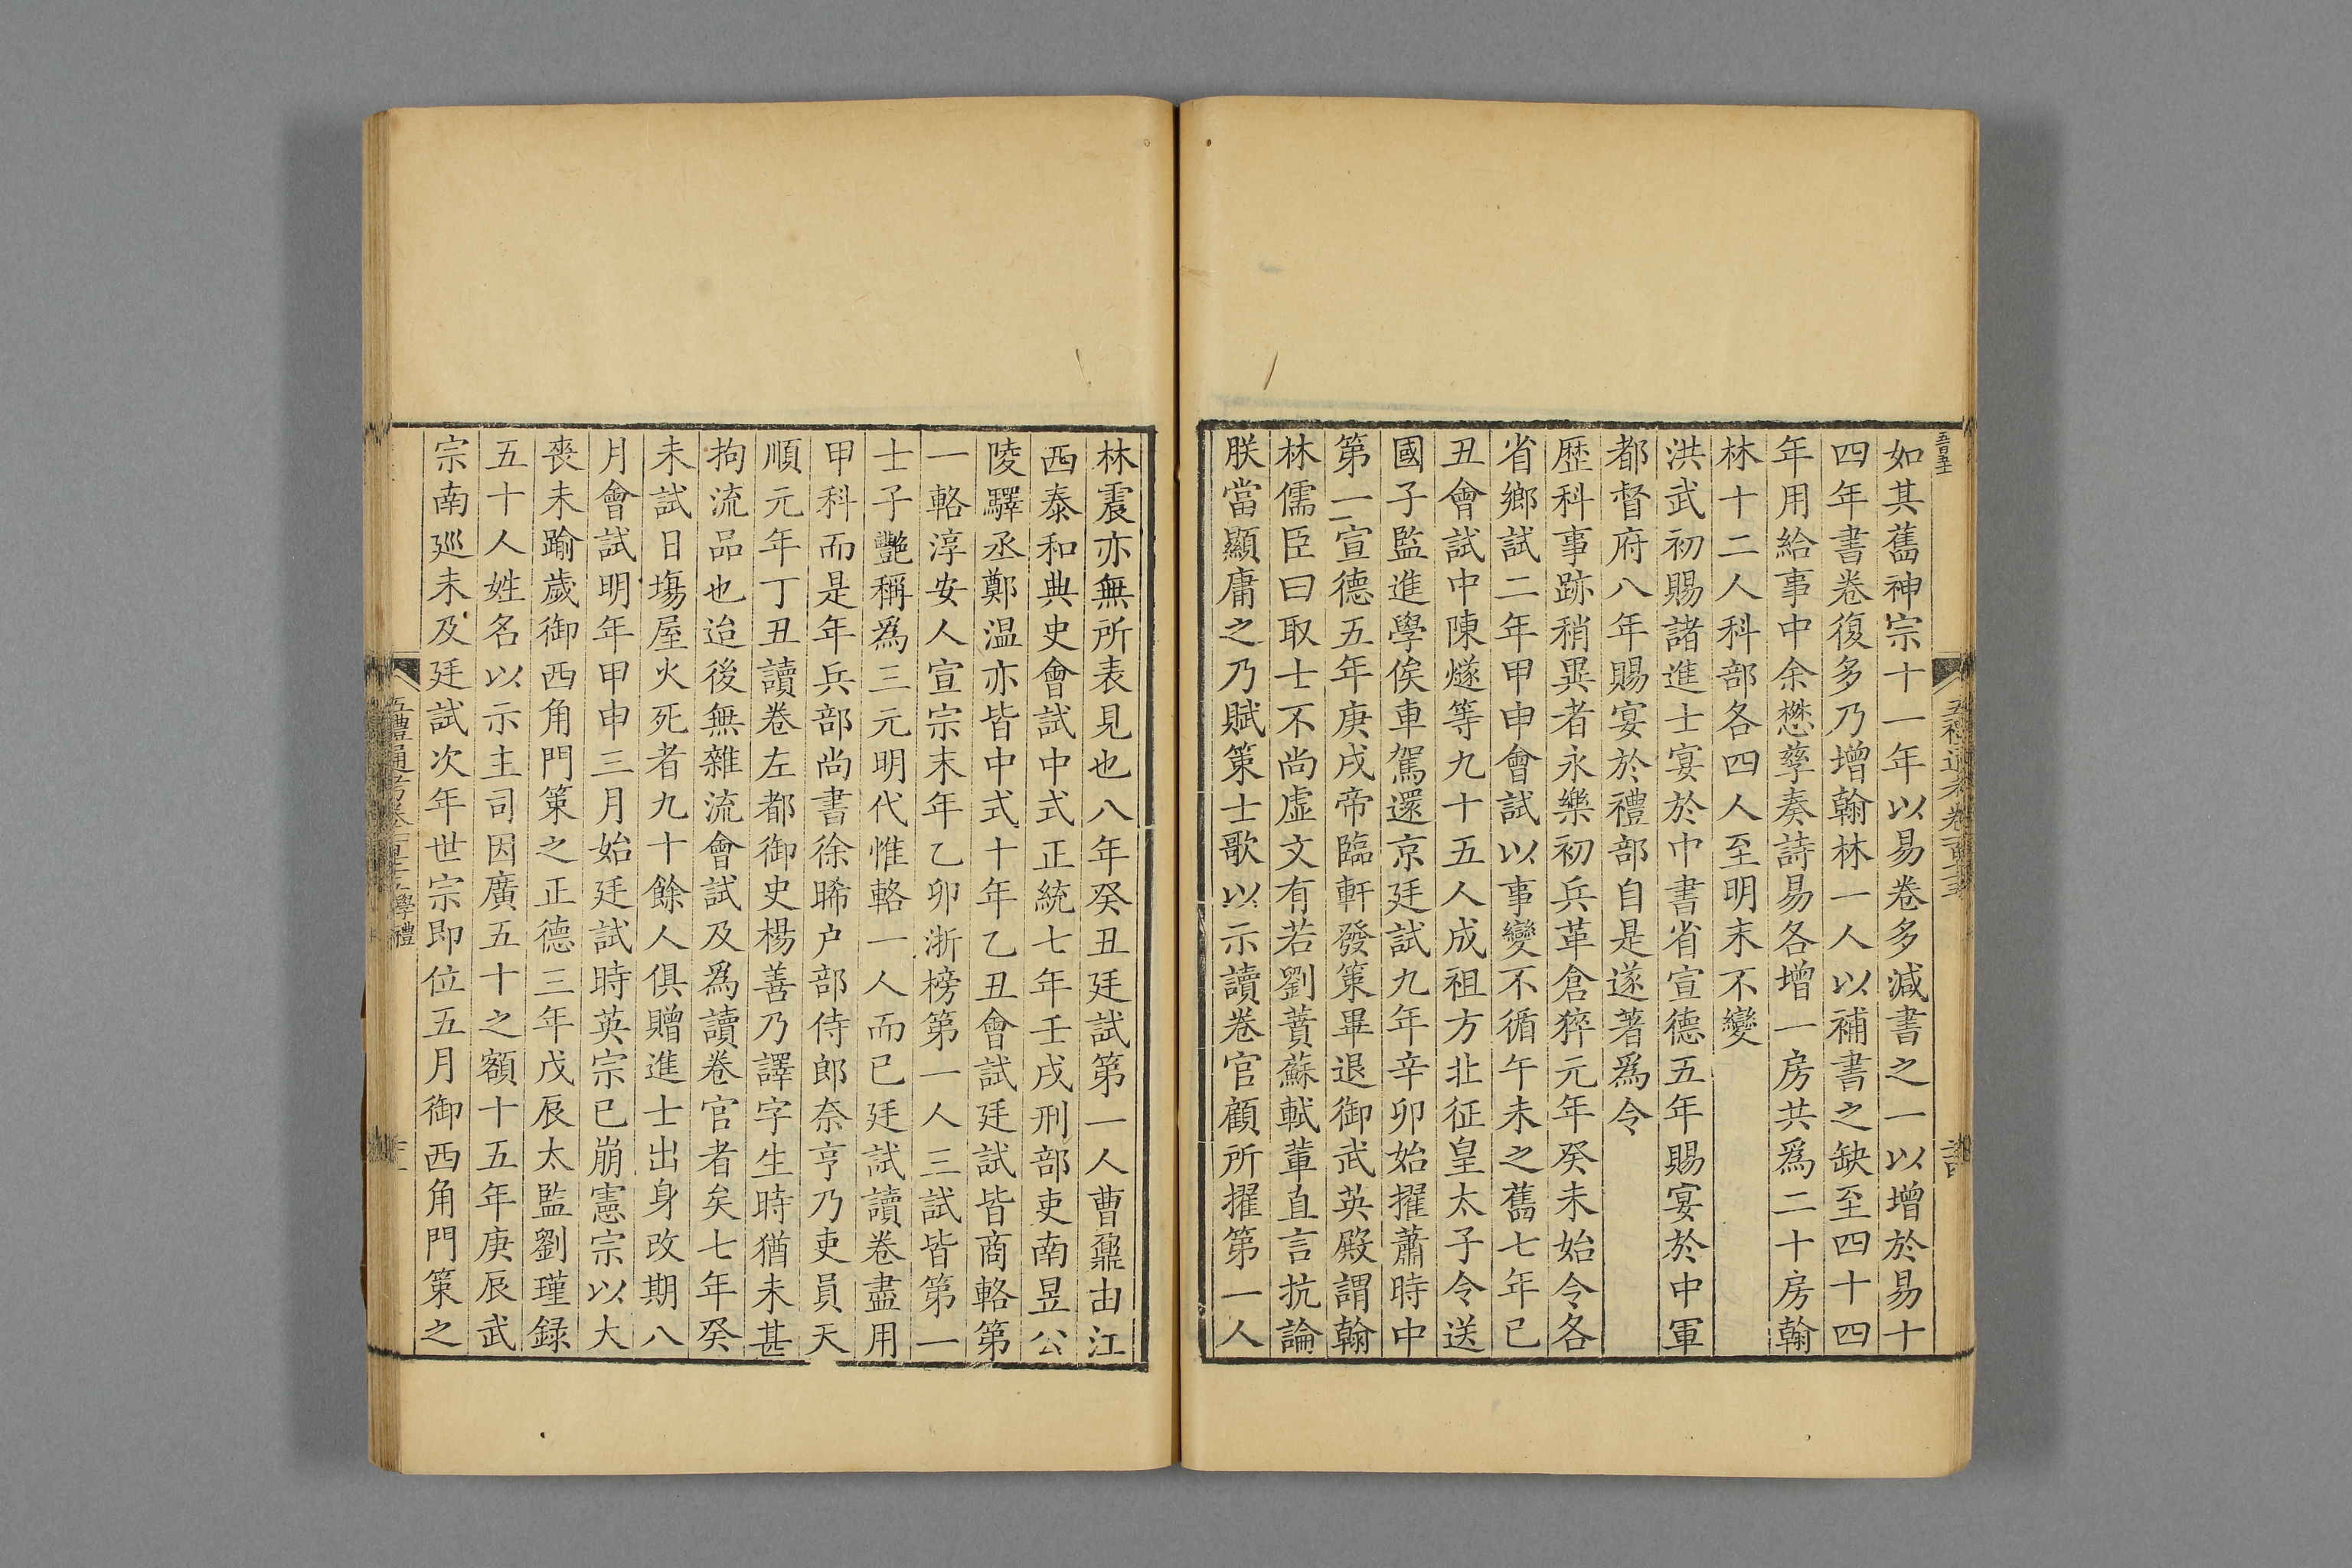 如其舊神宗十一年以易卷多減書之一以增於易十
四年書卷復多乃增翰林一人以補書之缺至四十四
年用給事中余懋孳奏詩易各增一房共爲二十房翰
林十二人科部各四人至明末不變
洪武初賜諸進士宴於中書省宣德五年賜宴於中軍
都督府八年賜宴於禮部自是遂著爲令
歷科事跡稍異者永樂初兵革倉猝元年癸未始令各
省鄉試二年甲申會試以事變不循午未之舊七年己
丑會試中陳燧等九十五人成祖方北征皇太子令送
國子監進學俟車駕還京廷試九年辛卯始擢蕭時中
第一宣德五年庚戌帝臨軒發策畢退御武英殿謂翰
林儒臣曰取士不尚虛文有若劉蕡蘇軾輩直言抗論
朕當顯庸之乃賦策士歌以示讀卷官顧所擢第一人
林震亦無所表見也八年癸丑廷試第一人曹鼐由江
西泰和典史會試中式正統七年壬戌刑部吏南昱公
陵驛丞鄭温亦皆中式十年乙丑會試廷試皆商輅第
一輅淳安人宣宗末年乙卯浙榜第一人三試皆第一
士子艷稱爲三元明代惟輅一人而已廷試讀卷盡用
甲科而是年兵部尚書徐晞户部侍郎奈亨乃吏員天
順元年丁丑讀卷左都御史楊善乃譯字生時猶未甚
拘流品也迨後無雜流會試及爲讀卷官者矣七年癸
未試日塲屋火死者九十餘人俱贈進士出身改期八
月會試明年甲申三月始廷試時英宗已崩憲宗以大
喪未踰歲御西角門策之正德三年戊辰太監劉瑾録
五十人姓名以示主司因廣五十之額十五年庚辰武
宗南廵未及廷試次年世宗即位五月御西角門策之
五禮通考卷一百七十 學禮